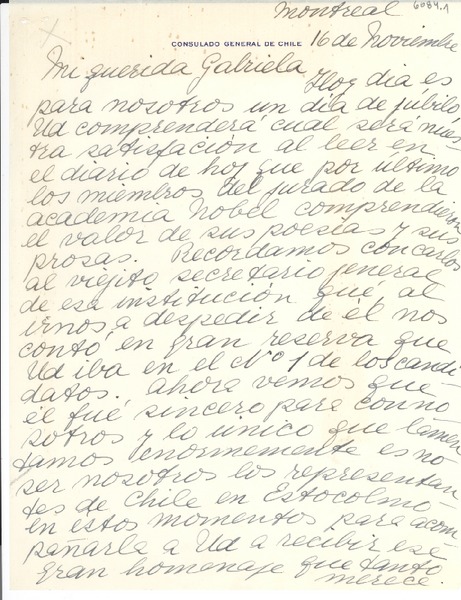 6084.1
Montreal
CONSULADO GENERAL DE CHILE
16 de Noviembre
Mi querida Gabriela, Hoy dia es
para nosotros un día de júbilo
Ud comprenderá cual será nues
tra satisfación al leer en
el diario de hoy que por ultimo
los miembros del jurado de la
academia Nobel comprendieron
el valor de sus poesías y sus
prosas. Recordamos con Carlos
al viejito secretario jeneral
de esa institución qué, al
irnos a despedir de él nos
contó en gran reserva que
Ud iba en el Nº 1 de los candi
datos. Ahora vemos que
él fué sincero para con no
sotros y lo único que lamen
tamos enormemente es no
ser nosotros los representan
tes de Chile en Estocolmo
en estos momentos para acom
pañarla a Ud a recibir ese
gran homenaje que tanto
merece.